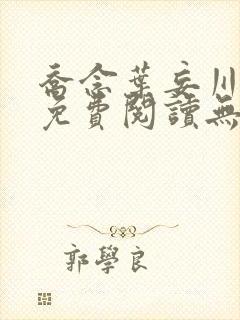 喬念葉妄川
免費閱讀無
郭學良